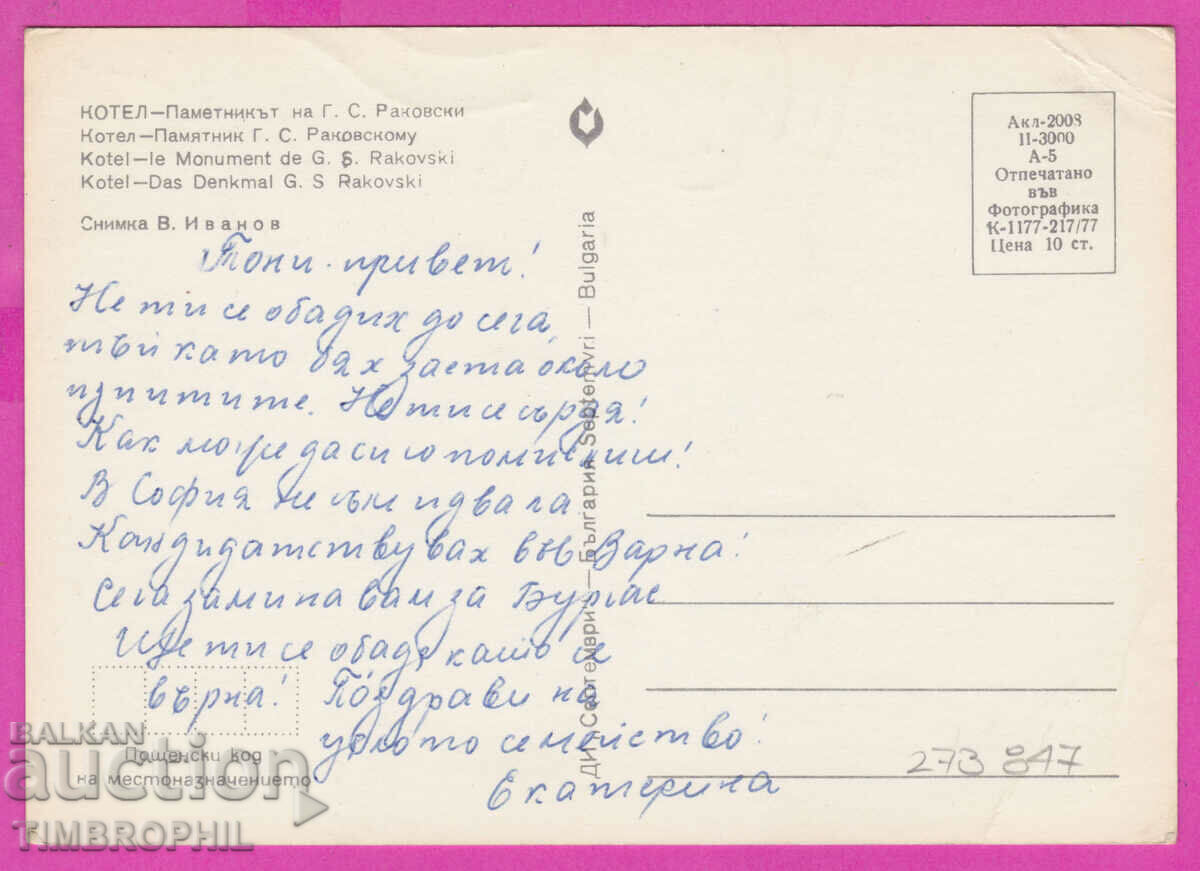 КОТЕЛ—Паметникът на Г. С. Раковски
Котел—Памятник Г. С. Раковскому
Kotel—le Monument de G. S. Rakovski
Kotel—Das Denkmal G. S Rakovski
Снимка В. Иванов
Акл-2008
II-3000
А-5
Отпечатано
във
Фотографика
К-1177-217/77
Цена 10 ст.
Тони привет!
Не ти се обадих до сега,
тъй като бях заета около
изпитите. Не ти се сърдя!
Как може да си го помислиш!
В София не съм идвала
Кандидатствувах във Варна!
Сега заминавам за Бургас
Ще ти се обадя като се
върна! Поздрави на
цялото семейство!
Екатерина
ДИ „Септември“ — България Septemvri — Bulgaria
Пощенски код
на местоназначението
273 847
BALKAN
auction
TIMBROPHIL